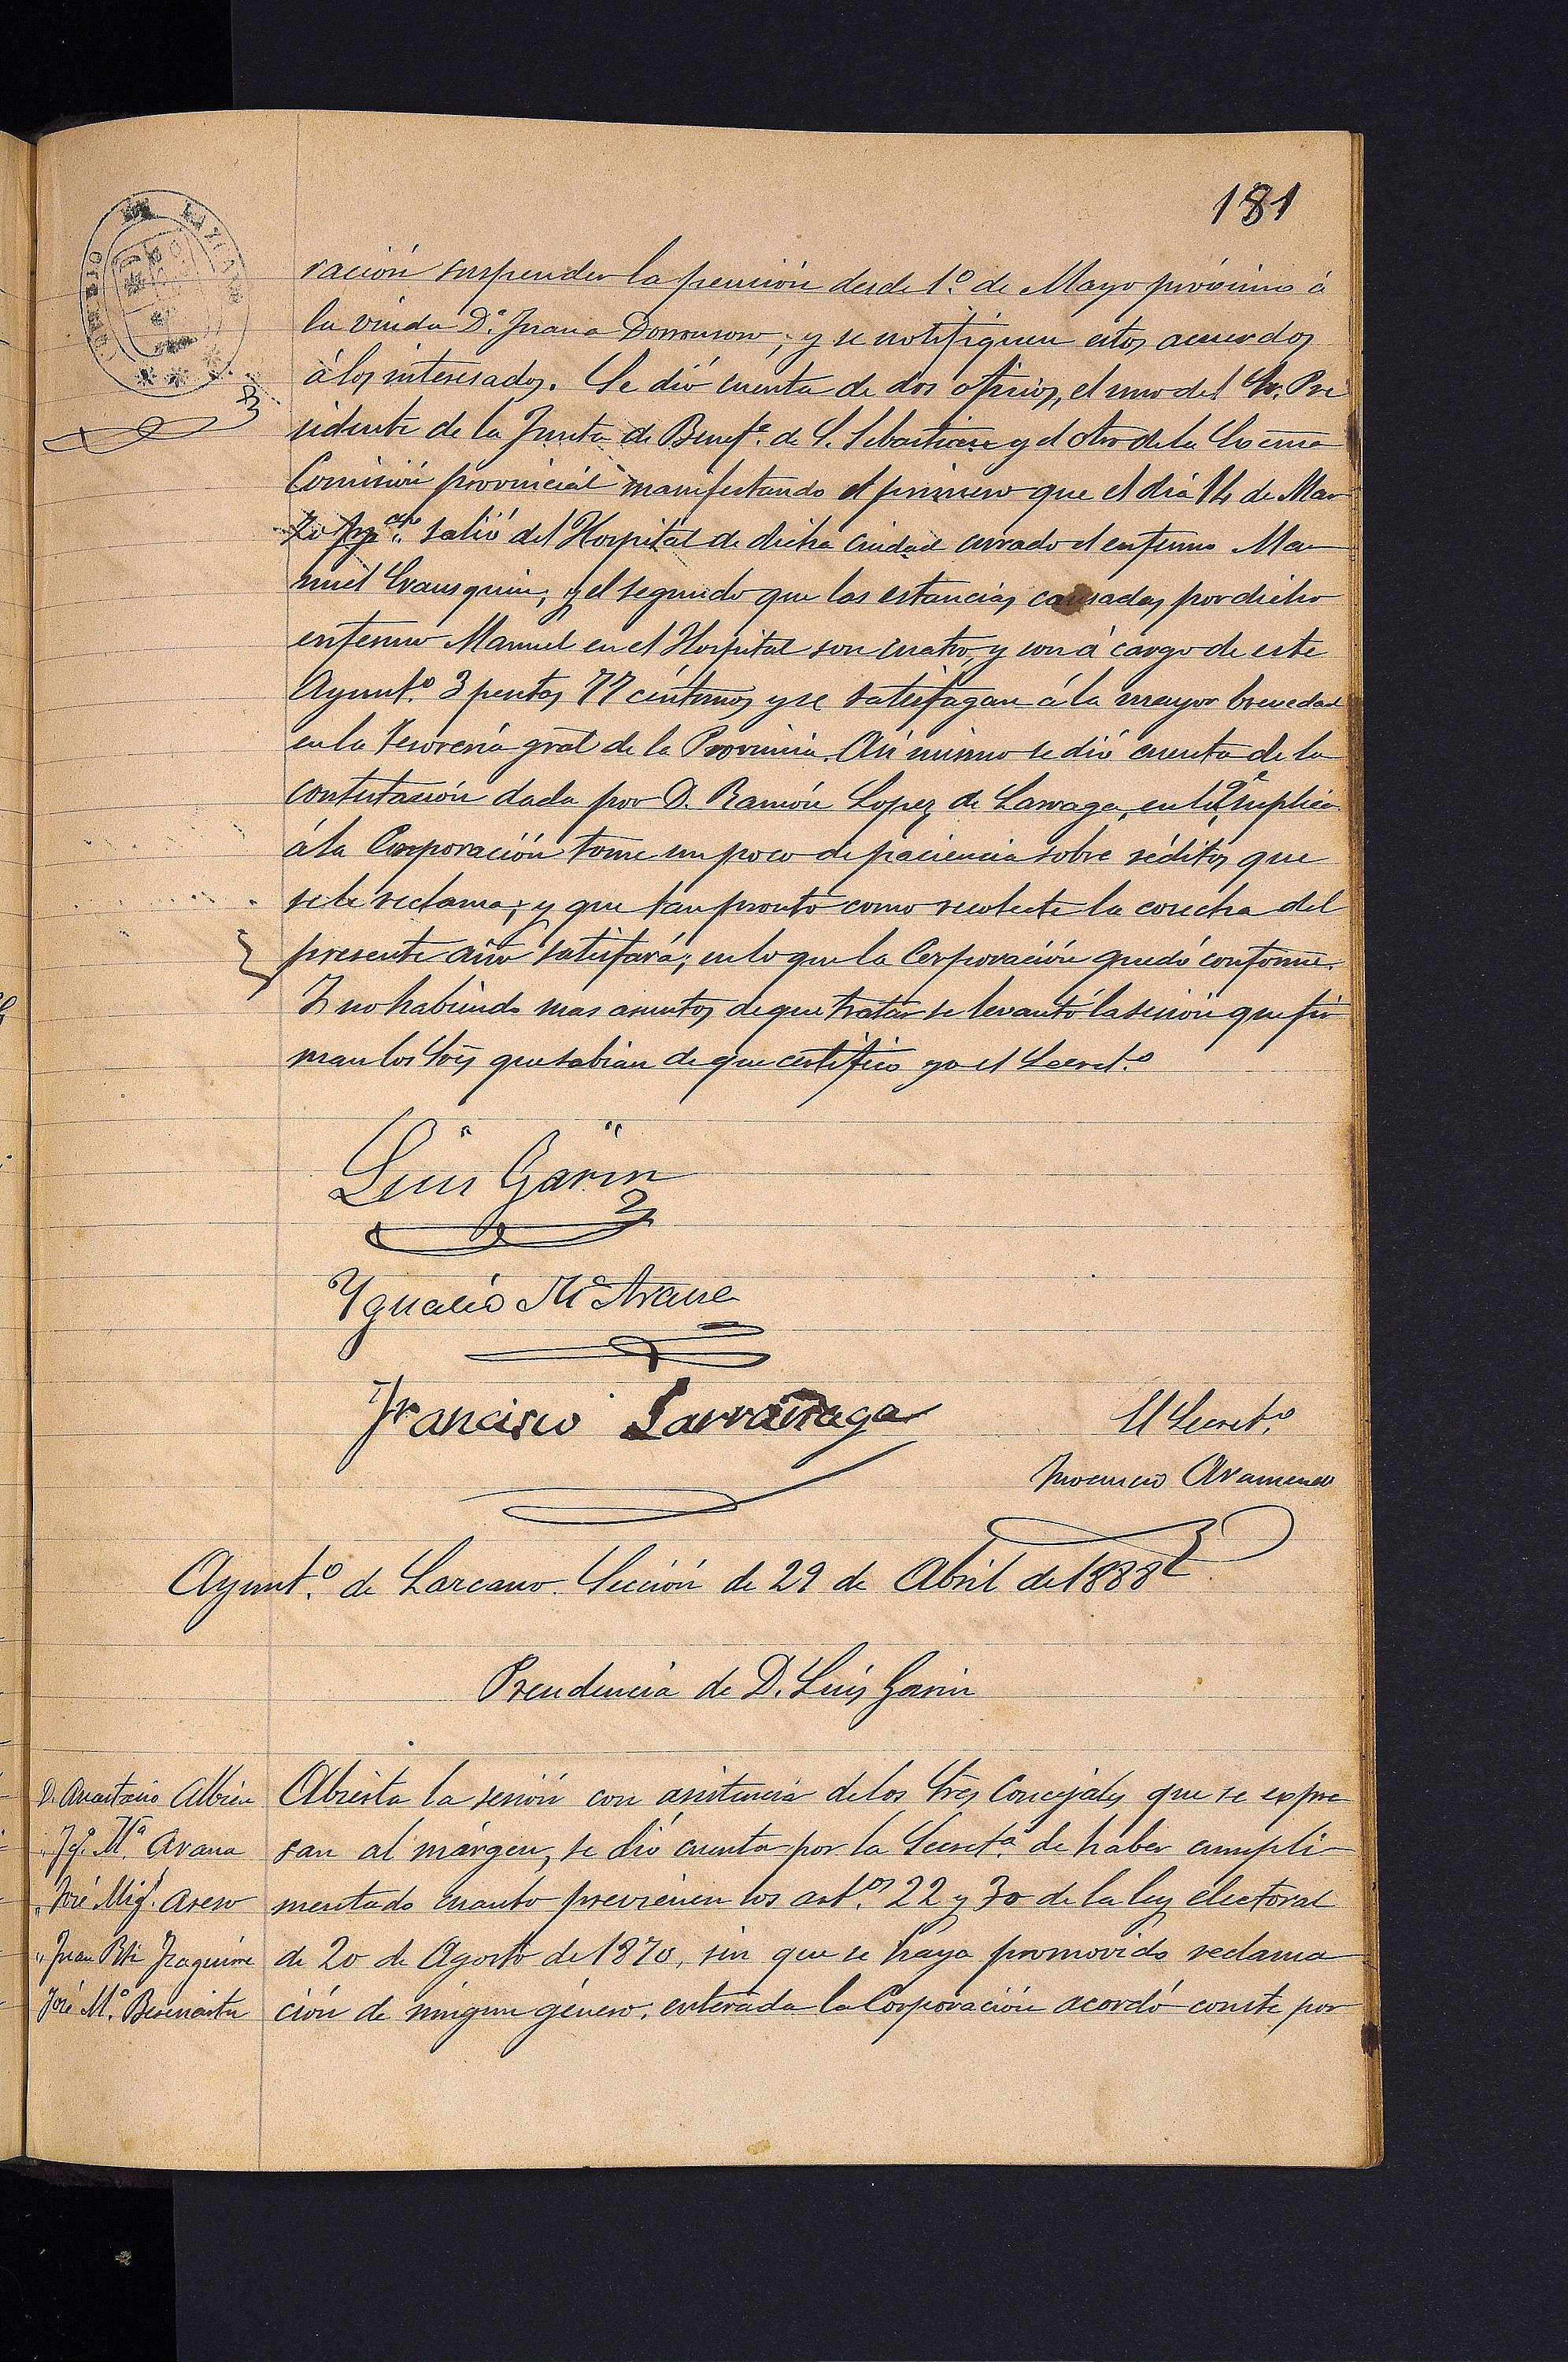 181
ración suspender la pensión desde 1.º de Mayo próximo á
la viuda D.ª Juana Dorronsoro, y se notifiquen estos acuerdos
á los interesados. Se dió cuenta de dos oficios, el uno del Sr. Pre
sidente de la Junta de Benef.ª de S. Sebastian y el otro de la Excma
Comisión provincial manifestando el primero que el dia 14 de Mar
zo salió del Hospital de dicha ciudad curado el enfermo Ma-
nuel Evansquin, y el segundo que las estancias causadas por dicho
enfermo Manuel en el Hospital son cuatro, y son á cargo de este
Ayunt.º 3 pesetas 77 céntimos y se satisfagan á la mayor brevedad
en la Tesoreria gral de la Provincia. Asi mismo se dió cuenta de la
contestación dada por D. Ramón Lopez de Larraga, en la q.e suplica
á la Corporación tome un poco de paciencia sobre réditos que
se le reclama, y que tan pronto como recolecte la cosecha del
presente año satisfará; en lo que la Corporación quedó conforme.
Y no habiendo mas asuntos de que tratar se levantó la sesión que fir
man los Sres que sabian de que certifico yo el Secret.º
Luis Garin
Ygnacio M.ª Arana
Francisco Larrañaga
El Secret.º
Inocencio Aramendi
Ayunt.º de Lazcano. Sección de 29 de Abril de 1888
Presidencia de D. Luis Garin
D. Anastasio Albisu
" Ig.º M.ª Arana
" José Mig.l Areso
" Juan Bta Izaguirre
José M.ª
Abierta la sesión con asistencia de los Sres Concejales que se expre
san al márgen, se dió cuenta por la Secret.ª de haber cumpli-
mentado cuanto previenen los art.os 22 y 30 de la ley electoral
de 20 de Agosto de 1870, sin que se haya promovido reclama
ción de ningun género, enterada la Corporación acordó conste por